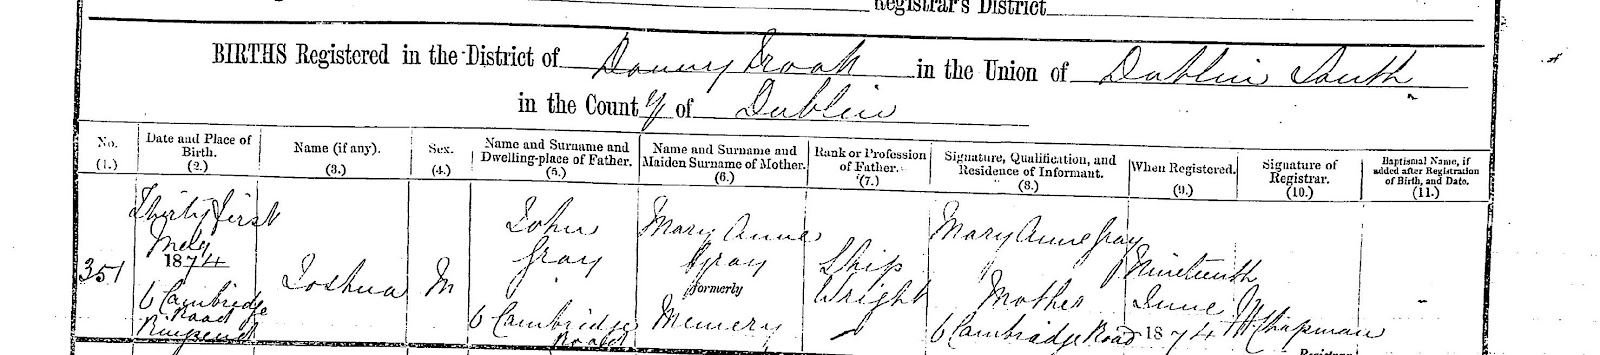 Registrar's District
BIRTHS Registered in the District of Donnybrook in the Union of Dublin South
in the County of Dublin
No. (1.)
Date and Place of Birth. (2.)
Name (if any). (3.)
Sex. (4.)
Name and Surname and Dwelling-place of Father. (5.)
Name and Surname and Maiden Surname of Mother. (6.)
Rank or Profession of Father. (7.)
Signature, Qualification, and Residence of Informant. (8.)
When Registered. (9.)
Signature of Registrar. (10.)
Baptismal Name, if added after Registration of Birth, and Date. (11.)
351
Thirty first
May
1874
6 Cambridge
Road
Ringsend
Joshua
M
John
Gray
6 Cambridge
Road
Mary Anne
Gray
formerly
Memery
Ship
Wright
Mary Anne Gray
Mother
6 Cambridge Road
Nineteenth
June
1874
Chapman
Registrar